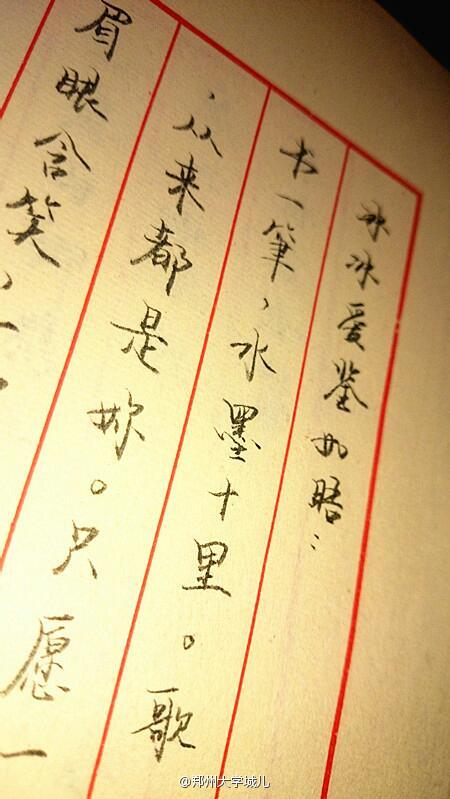 冰冰爱鉴如晤：
书一筆，水墨十里。歌
，从来都是妳。只愿一
眉眼含笑，一
@郑州大学城儿